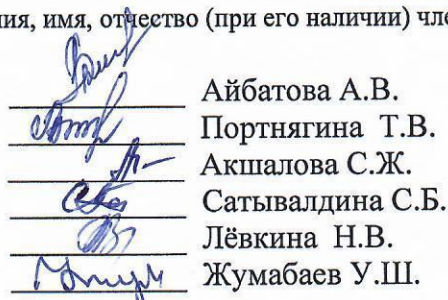 ния, имя, отчество (при его наличии) чле
Айбатова А.В.
Портнягина Т.В.
Акшалова С.Ж.
Сатывалдина С.Б.
Лёвкина Н.В.
Жумабаев У.Ш.